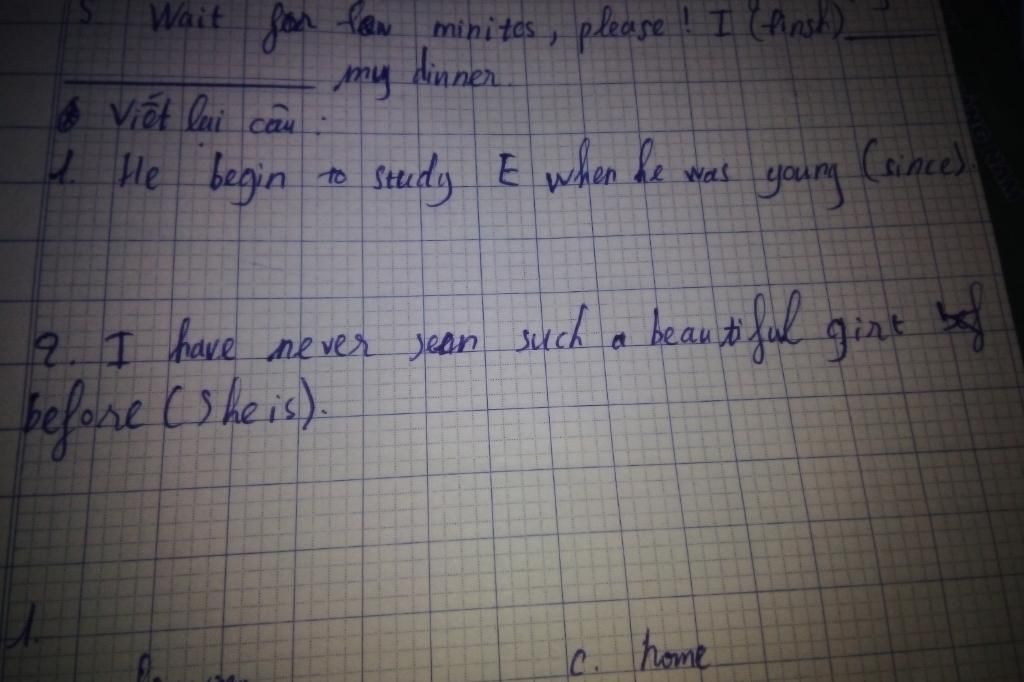 5 Wait for few minites, please! I (finsh) ___
___ my dinner.
Viết lại câu :
1. He begin to study E when he was young (since).
2. I have never seen such a beautiful girl
before (She is).
1.
C. home